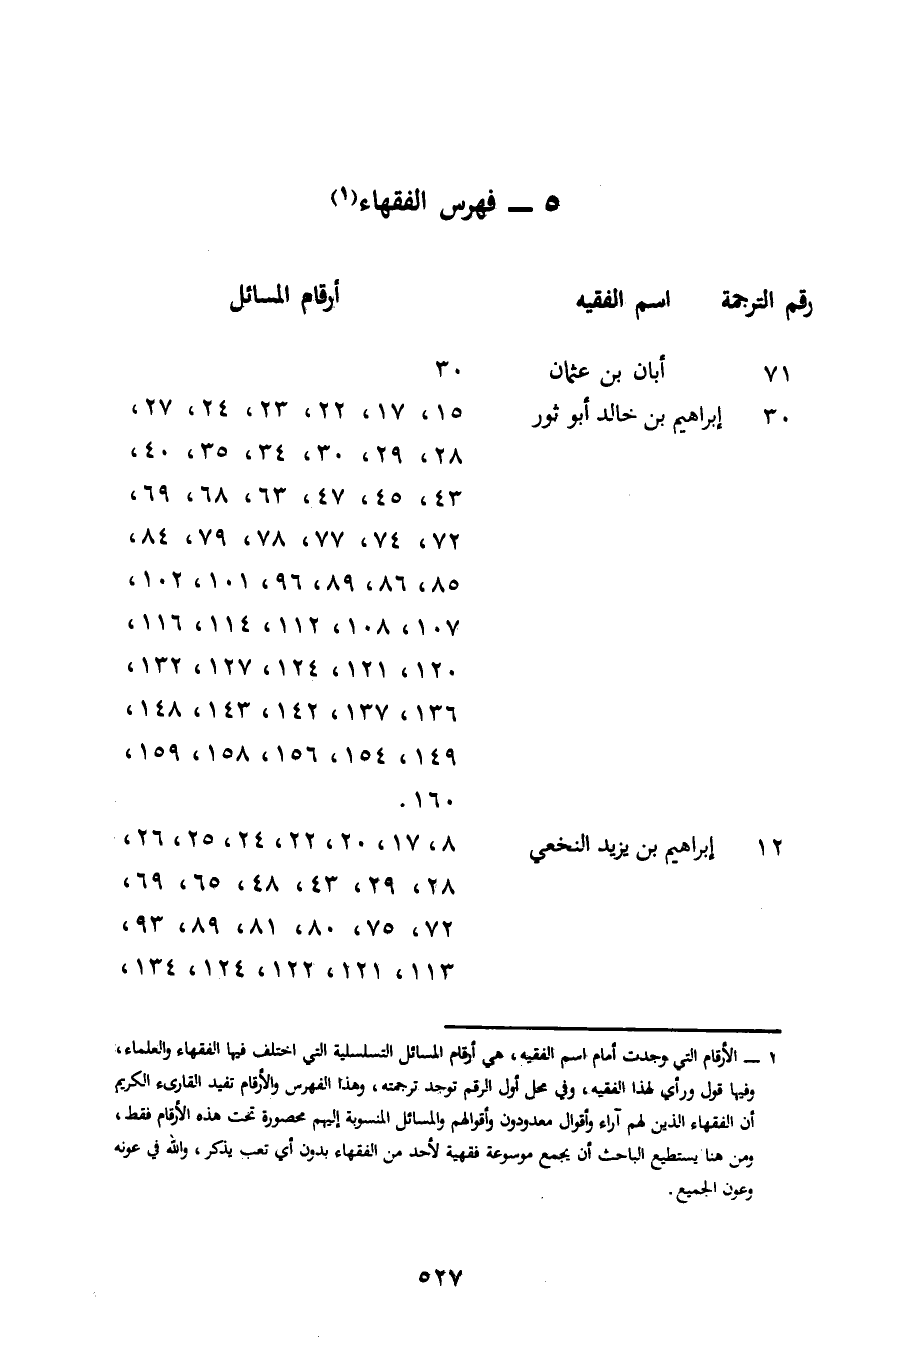 ٥ ــ فهرس الفقهاء(١)
رقم الترجمة اسم الفقيه أرقام المسائل
٧١ أبان بن عثمان ٣٠
٣٠ إبراهيم بن خالد أبو ثور ١٥، ١٧، ٢٢، ٢٣، ٢٤، ٢٧،
٢٨، ٢٩، ٣٠، ٣٤، ٣٥، ٤٠،
٤٣، ٤٥، ٤٧، ٦٣، ٦٨، ٦٩،
٧٢، ٧٤، ٧٧، ٧٨، ٧٩، ٨٤،
٨٥، ٨٦، ٨٩، ٩٦، ١٠١، ١٠٢،
١٠٧، ١٠٨، ١١٢، ١١٤، ١١٦،
١٢٠، ١٢١، ١٢٤، ١٢٧، ١٣٢،
١٣٦، ١٣٧، ١٤٢، ١٤٣، ١٤٨،
١٤٩، ١٥٤، ١٥٦، ١٥٨، ١٥٩،
١٦٠.
١٢ إبراهيم بن يزيد النخعي ٨، ١٧، ٢٠، ٢٢، ٢٤، ٢٥، ٢٦،
٢٨، ٢٩، ٤٣، ٤٨، ٦٥، ٦٩،
٧٢، ٧٥، ٨٠، ٨١، ٨٩، ٩٣،
١١٣، ١٢١، ١٢٢، ١٢٤، ١٣٤،
١ ــ الأرقام التي وجدت أمام اسم الفقيه، هي أرقام المسائل التسلسلية التي اختلف فيها الفقهاء والعلماء،
وفيها قول ورأي لهذا الفقيه، وفي محل أول الرقم توجد ترجمته، وهذا الفهرس والأرقام تفيد القارىء الكريم
أن الفقهاء الذين لهم آراء وأقوال معدودون وأقوالهم والمسائل المنسوبة إليهم محصورة تحت هذه الأرقام فقط،
ومن هنا يستطيع الباحث أن يجمع موسوعة فقهية لأحد من الفقهاء بدون أي تعب يذكر، والله في عونه
وعون الجميع.
٥٢٧